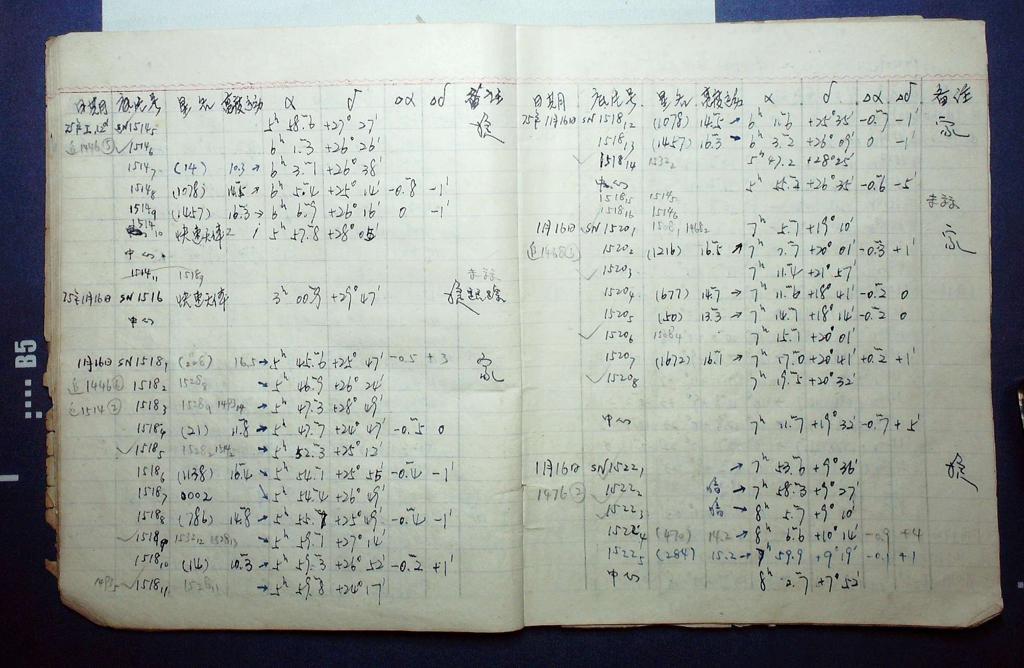 日期 底片号 星名 亮度运动 α δ Δα Δδ 备注
SN1514₅ 5ʰ 58.ᵐ6 +27° 27′
1514₆ 6ʰ 1.ᵐ3 +26° 26′
1514₇ (14) 10.3 → 6ʰ 3.ᵐ1 +26° 38′
1514₈ (1078) 14.5 → 6ʰ 5.ᵐ4 +25° 14′ -0.ᵐ8 -1′
1514₉ (1457) 16.3 → 6ʰ 6.ᵐ9 +26° 16′ 0 -1′
1514₁₀ 快速天体2 5ʰ 57.ᵐ8 +28° 05′
中心
1514₁₁ 1518₉
75年1月16日 SN 1516 快速天体 3ʰ 00.ᵐ9 +29° 47′
中心
1月16日 SN1518₁ 16.5 → 5ʰ 45.ᵐ6 +25° 47′ -0.5 +3
1446⑥ 1518₂ 1528₈ → 5ʰ 46.ᵐ9 +26° 24′
1514② 1518₃ 1528₉ → 5ʰ 47.ᵐ3 +28° 49′
1518₄ (21) 11.8 → 5ʰ 47.ᵐ7 +24° 47′ -0.ᵐ5 0
1518₅ → 5ʰ 52.ᵐ3 +25° 12′
1518₆ (1138) 16.4 → 5ʰ 54.ᵐ1 +25° 55′ -0.ᵐ4 -1′
1518₇ 0002 ↘ 5ʰ 54.ᵐ4 +26° 49′
1518₈ (786) 14.8 → 5ʰ 55.ᵐ7 +25° 49′ -0.ᵐ4 -1′
1518₉ 1532₁₂ 1528₁₃ → 5ʰ 59.ᵐ1 +27° 14′
1518₁₀ (14) 10.3 → 5ʰ 59.ᵐ3 +26° 52′ -0.ᵐ2 +1′
1493₅ 1518₁₁ 1528₁₁ → 5ʰ 59.ᵐ8 +24° 17′
日期 底片号 星名 亮度运动 α δ Δα Δδ 备注
75年1月16日 SN 1518₁₂ (1078) 14.5 → 6ʰ 1.ᵐ6 +25° 35′ -0.ᵐ7 -1′ 家
1518₁₃ (1457) 16.3 → 6ʰ 3.ᵐ2 +26° 09′ 0 -1′
1518₁₄ 1532₂ 5ʰ 47.ᵐ2 +28° 25′
中心 5ʰ 55.ᵐ2 +26° 35′ -0.ᵐ6 -5′
1518₁₅ 1514₅
1518₁₆ 1514₆
1月16日 SN 1520₁ 1508₁ 1468₂ 7ʰ 5.ᵐ7 +19° 10′ 家
1468① 1520₂ (1216) 16.5 ↗ 7ʰ +20° 01′ -0.ᵐ3 +1′
1520₃ 7ʰ 11.ᵐ4 +21° 57′
1520₄ (677) 14.7 → 7ʰ 11.ᵐ6 +18° 41′ -0.ᵐ2 0
1520₅ (50) 13.3 → 7ʰ 14.ᵐ7 +18° 14′ -0.ᵐ2 0
1520₆ 1508₄ 7ʰ 15.ᵐ1 +20° 01′
1520₇ (1672) 16.1 → 7ʰ 17.ᵐ0 +20° 41′ +0.ᵐ2 +1′
1520₈ 7ʰ 19.ᵐ5 +20° 32′
中心 7ʰ 11.ᵐ7 +19° 32′ -0.ᵐ7 +5′
1月16日 SN1522₁ → 7ʰ 53.ᵐ6 +9° 36′
1476② 1522₂ 暗 → 7ʰ 58.ᵐ3 +9° 27′
1522₃ 暗 → 8ʰ 5.ᵐ7 +9° 10′
1522₄ (470) 14.2 → 8ʰ 6.ᵐ6 +10° 14′ -0.9 +4
1522₅ (284) 15.2 → 59.9 +9° 19′ -0.1 +1
中心 8ʰ 2.ᵐ7 +7° 52′
B5